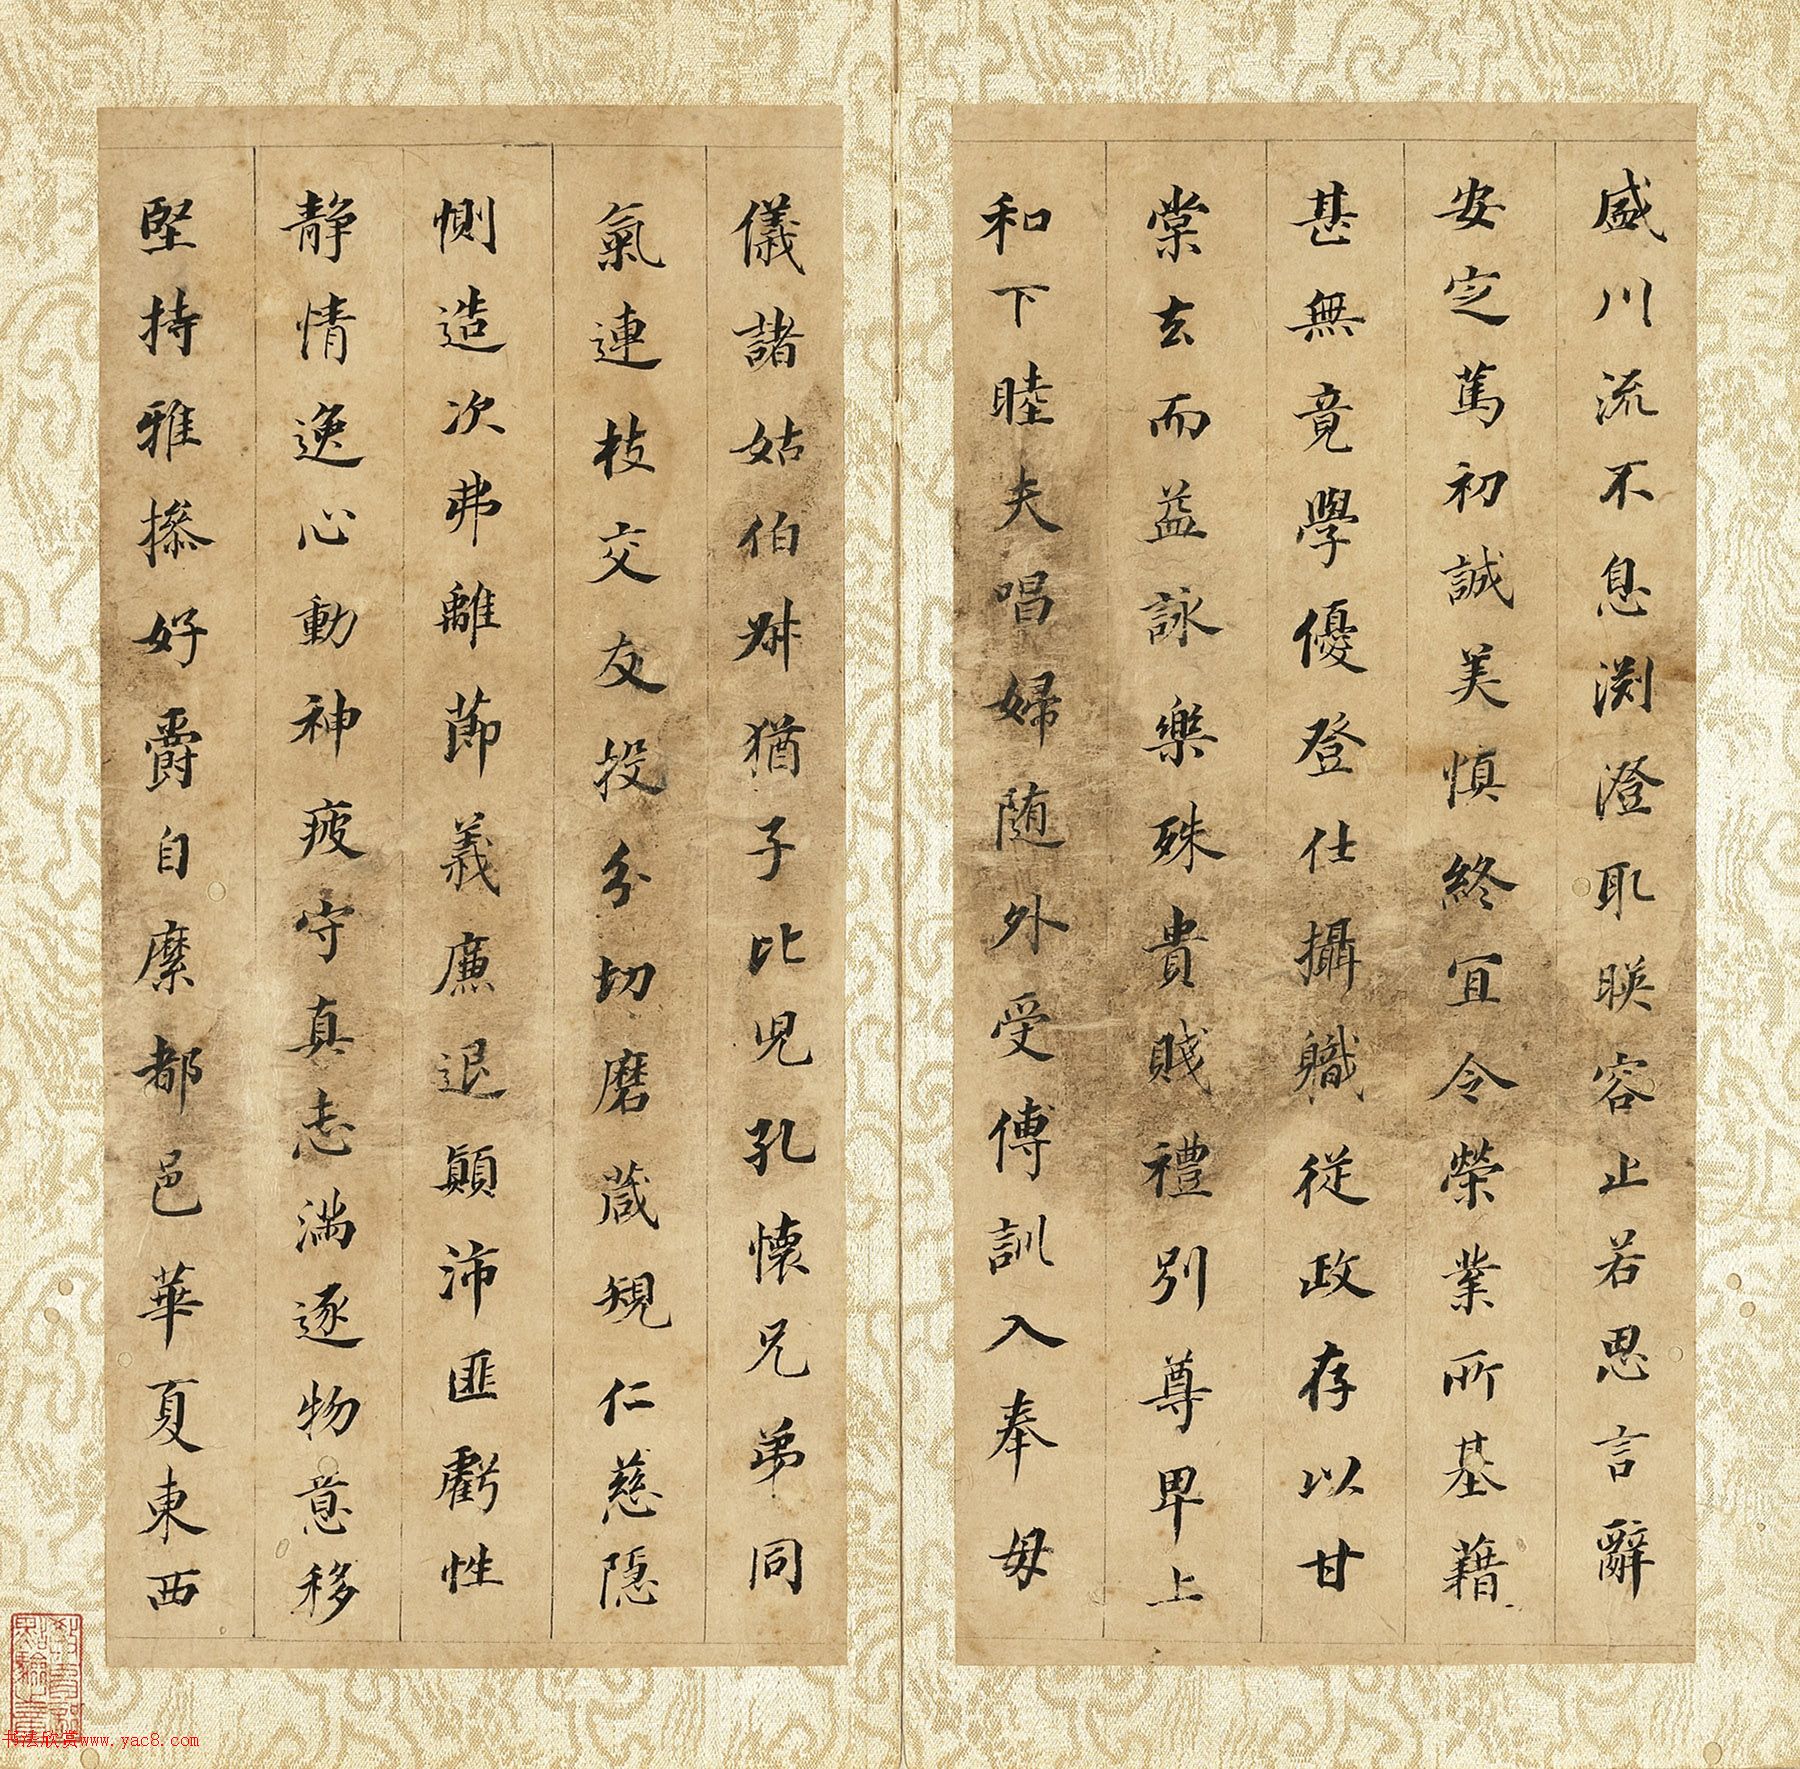 盛川流不息渊澄取暎容止若思言辭
安定篤初誠美慎終宜令榮業所基藉
甚無竟學優登仕攝職從政存以甘
棠去而益詠樂殊貴賤禮別尊卑上
和下睦夫唱婦随外受傅訓入奉母
儀諸姑伯叔猶子比児孔懐兄弟同
氣連枝交友投分切磨葴規仁慈隠
惻造次弗離莭義廉退顛沛匪虧性
静情逸心動神疲守真志満逐物意移
堅持雅操好爵自縻都邑華夏東西
书法欣赏www.yac8.com